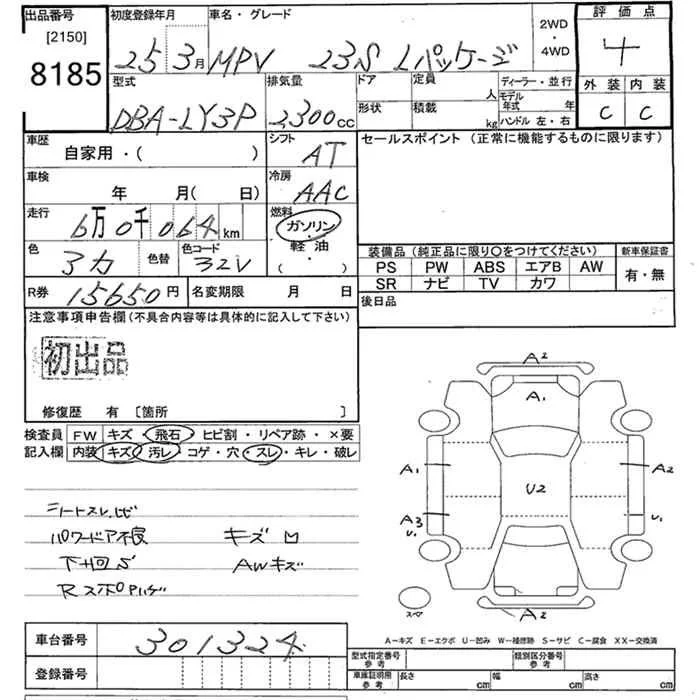 出品番号
[2150]
8185
初度登録年月
25 3月
車名・グレード
MPV 23S Lパッケージ
2WD
・
4WD
評価点
4
外装 内装
C C
型式
DBA-LY3P
排気量
2300cc
ドア
形状
定員 人
積載 kg
ディーラー・並行
モデル年式 年
ハンドル 左・右
車歴
自家用・( )
シフト
AT
車検
年 月( 日)
冷房
AAC
走行
6万0千064km
燃料
ガソリン
・
軽油
( )
色
色替
色コード
32V
R券 15650円
名変期限 月 日
セールスポイント (正常に機能するものに限ります)
装備品(純正品に限り○をつけてください)
新車保証書
PS PW ABS エアB AW
SR ナビ TV カワ
有・無
後日品
注意事項申告欄(不具合内容等は具体的に記入して下さい)
初出品
修復歴 有 [箇所 ]
検査員記入欄
FW キズ・飛石・ヒビ割・リペア跡・×要
内装 キズ・汚レ・コゲ・穴・スレ・キレ・破レ
シートスレ
パワードア不良 キズ
下回S AWキズ
A2
A1
A1 A2
U2
A3 U1
U1
A2
スペア
A-キズ E-エクボ U-凹み W-補修跡 S-サビ C-腐食 XX-交換済
車台番号 301324
登録番号
型式指定番号 参考
類別区分番号 参考
車庫証明用 参考
長さ cm 幅 cm 高さ cm